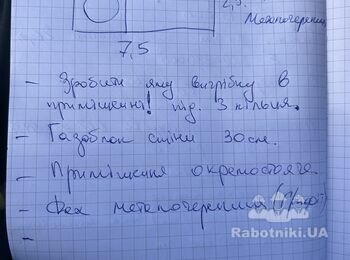 2,5.
Металочерепиця
7,5
- Зробити яму вигрібну в
приміщенні! під. 3 кільця.
- Газаблок стіни 30см.
- Приміщення окремостояче.
- Дах металочерепиця
-
Rabotniki.UA